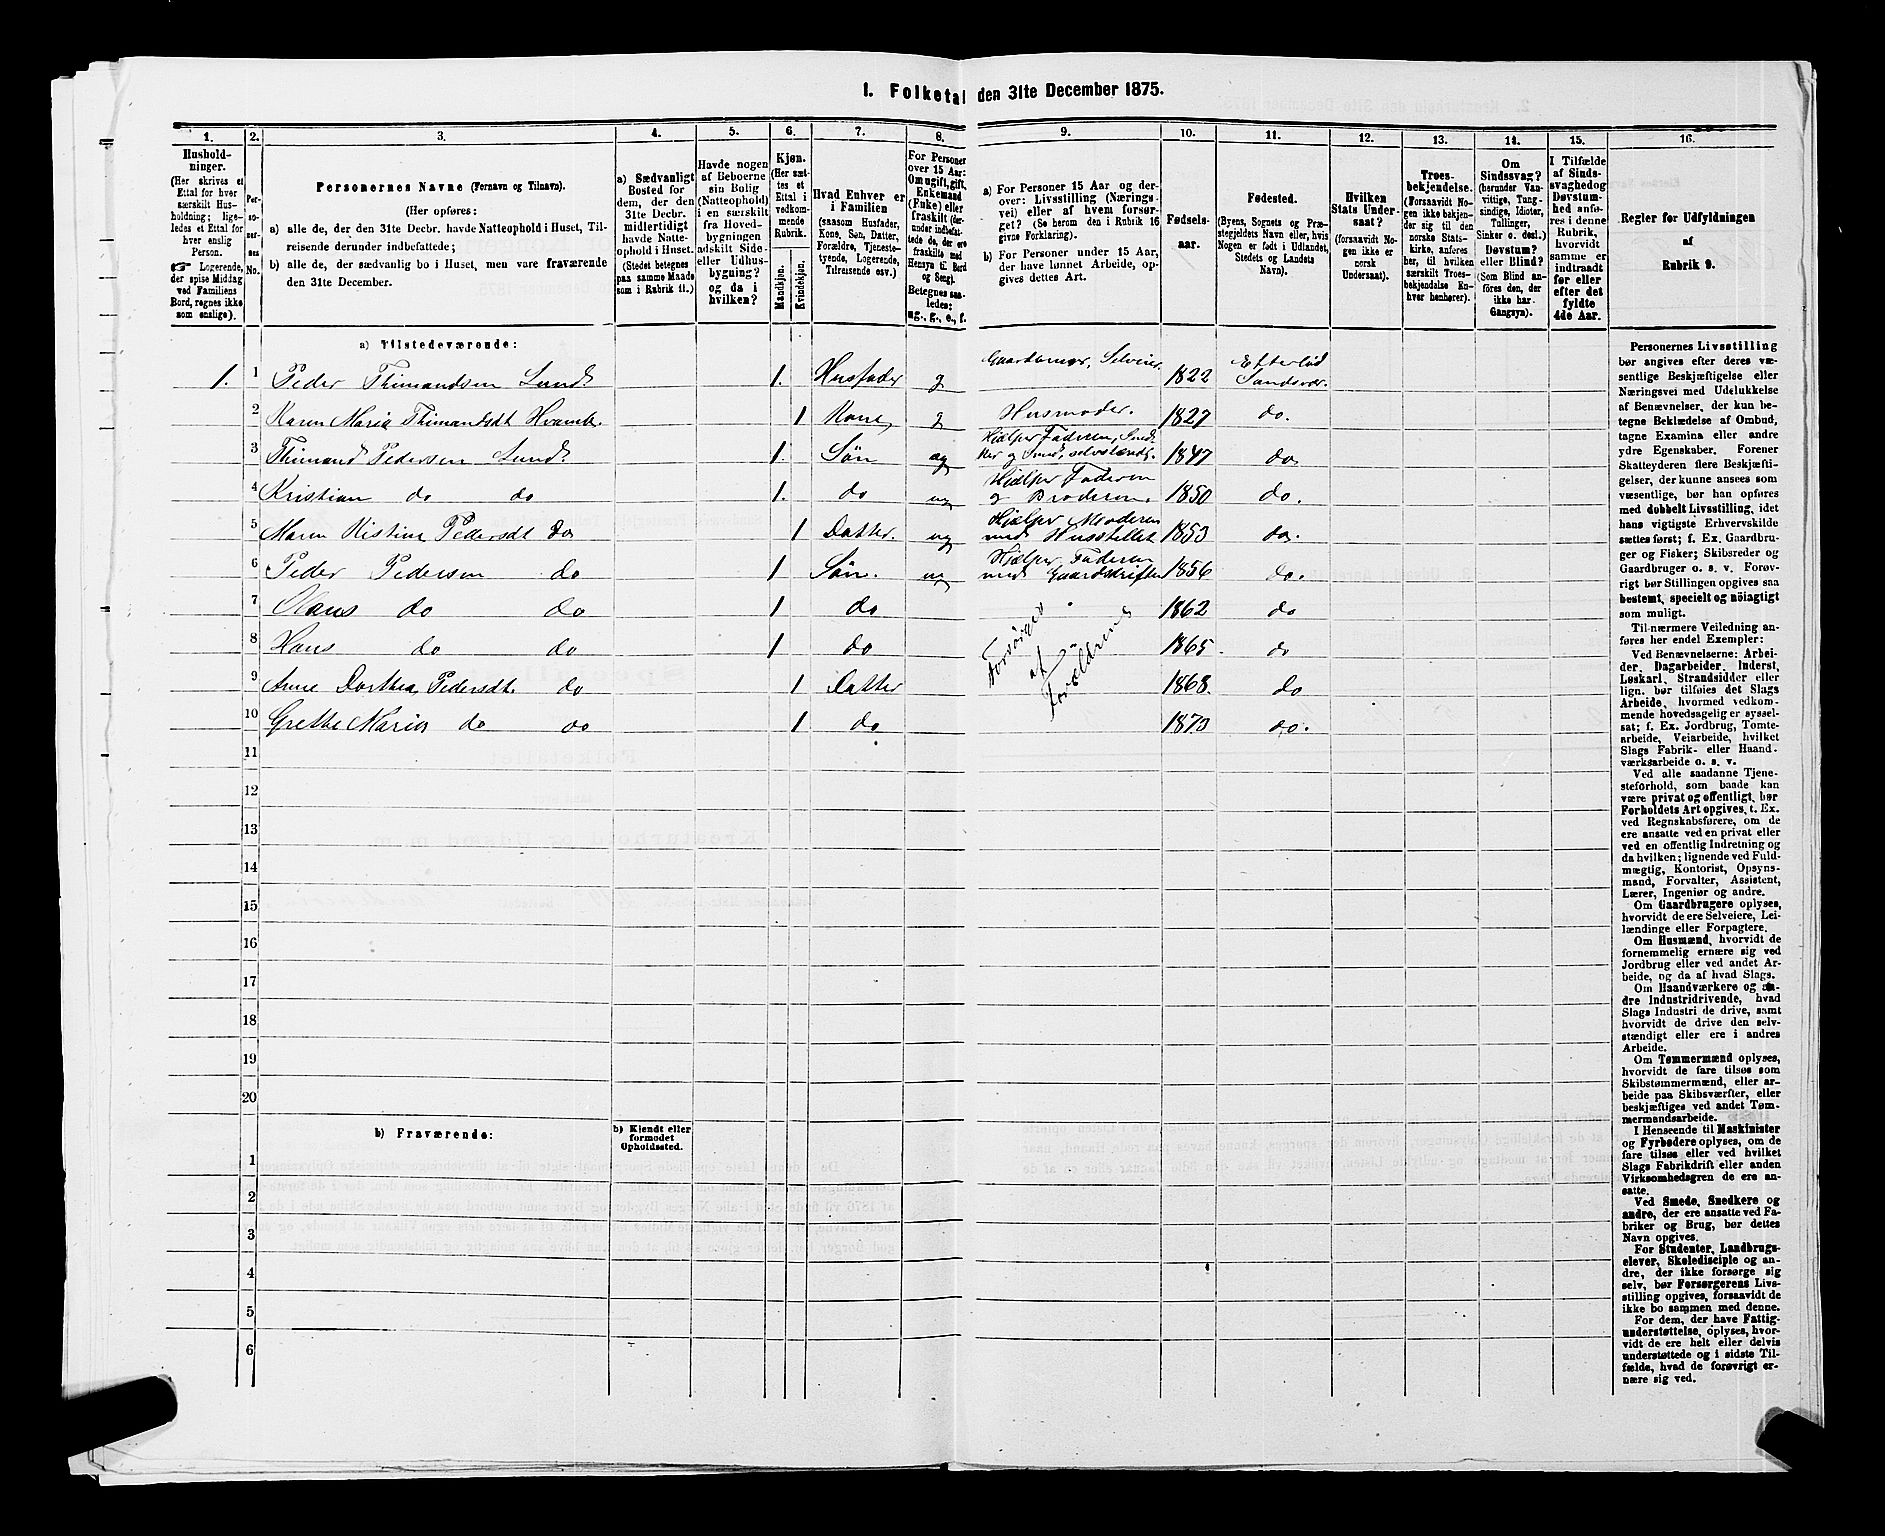 1. Folketal den 31te December 1875.
1.
Hushold-
ninger.
(Her skrives et
Ettal for hver
særskilt Hus-
holdning; lige-
ledes et Ettal
for hver
enslig
Person.
☛ Logerende,
der spise Middag
ved Familiens
Bord, regnes ikke
som enslige).
2.
Per-
so-
ner-
nes
No.
3.
Personernes Navne (Fornavn og Tilnavn).
(Her opføres:
a) alle de, der den 31te Decbr. havde Natteophold i Huset, Til-
reisende derunder indbefattede;
b) alle de, der sædvanlig bo i Huset, men vare fraværende
den 31te December.
4.
a) Sædvanligt
Bosted for
dem, der den
31te Decbr.
midlertidigt
havde Natte-
ophold i Huset.
(Stedet betegnes
paa samme Maade
som i Rubrik 11.)
5.
Havde nogen
af Beboerne
sin Bolig
(Natteophold)
i en særskilt
fra Hoved-
bygningen
adskilt Side-
eller Udhus-
bygning?
og da i
hvilken?
6.
Kjøn.
(Her sæt-
tes et
Ettal i
vedkom-
mende
Rubrik.
Mandkjøn.
Kvindekjøn.
7.
Hvad Enhver er
i Familien
(saasom Husfader,
Kone, Søn, Datter,
Forældre, Tjeneste-
tyende, Logerende,
Tilreisende osv.)
8.
For Personer
over 15 Aar:
Om ugift, gift,
Enkemand
(Enke) eller
fraskilt (der-
under indbefat-
tede de, der ere
fraskilte med
Hensyn til Bord
og Seng).
Betegnes saa-
ledes:
ug., g., e., f.
9.
a) For Personer 15 Aar og der-
over: Livsstilling (Nærings-
vei) eller af hvem forsør-
get? (Se herom den i Rubrik 16
givne Forklaring).
b) For Personer under 15 Aar,
der have lønnet Arbeide, op-
gives dettes Art.
10.
Fødsels-
aar.
11.
Fødested.
(Byens, Sognets og Præ-
stegjeldets Navn eller, hvis
Nogen er født i Udlandet,
Stedets og Landets
Navn).
12.
Hvilken
Stats Under-
saat?
(forsaavidt No-
gen ikke er
norsk
Undersaat).
13.
Troes-
bekjendelse.
(Forsaavidt No-
gen ikke bekjen-
der sig til den
norske Stats-
kirke, anføres
her, til hvilken
særskilt Troes-
bekjendelse En-
hver henhører).
14.
Om
Sindssvag?
(herunder Van-
vittige, Tung-
sindige, Idioter,
Tullinger,
Sinker o. desl.)
Døvstum?
eller Blind?
(Som Blind an-
føres den, der
ikke har
Gangsyn).
15.
I Tilfælde
af Sinds-
svaghed og
Døvstum-
hed anfø-
res i denne
Rubrik,
hvorvidt
samme er
indtraadt
før eller
efter det
fyldte
4de Aar.
16.
Regler for Udfyldningen
af
Rubrik 9.
a) Tilstedeværende:
1. 1 Peder Thimandsen Lund 1. Husfader g Gaardbruger, Selveier 1822 Efterlød Sandsvær.
2 Karen Maria Thimandsdt Hvamb. 1 Kone g Husmoder. 1827 do.
3 Thimand Pedersen Lund. 1. Søn ug Hjælper Faderen, Sned-
ker og Smed, selvstændig. 1847 do.
4 Kristian do do 1. do ug Hjælper Faderen
og Broderen. 1850 do.
5 Maren Kistine Pedersdt do 1 Datter. ug Hjælper Moderen
med Husstellet 1853 do.
6 Peder Pedersen do 1 Søn. ug Hjælper Faderen
med Gaardsdriften 1856 do.
7 Claus do do 1 do 1862 do
8 Hans do do 1 do 1865 do
Forsørges
af
Forældrene
9 Anne Dorthea Pedersdt. do 1 Datter 1868. do
10 Grethe Maria do do 1 do 1873 do.
11
12
13
14
15
16
17
18
19
20
b) Fraværende:
b) Kjendt eller
formodet
Opholdssted.
1
2
3
4
5
6
Personernes Livsstilling
bør angives efter deres væ-
sentlige Beskjæftigelse eller
Næringsvei med Udelukkelse
af Benævnelser, der kun be-
tegne Beklædelse af Ombud,
tagne Examina eller andre
ydre Egenskaber. Forener
Skatteyderen flere Beskjæfti-
gelser, der kunne ansees som
væsentlige, bør han opføres
med dobbelt Livsstilling, idet
hans vigtigste Erhvervskilde
sættes først; f. Ex. Gaardbru-
ger og Fisker; Skibsreder og
Gaardbruger o. s. v. Forøv-
rigt bør Stillingen opgives saa
bestemt, specielt og nøiagtigt
som muligt.
Til nærmere Veiledning an-
føres her endel Exempler:
Ved Benævnelserne: Arbei-
der, Dagarbeider, Inderst,
Løskarl, Strandsidder eller
lign. bør tilføies det Slags
Arbeide, hvormed vedkom-
mende hovedsagelig er syssel-
sat; f. Ex. Jordbrug, Tomte-
arbeide, Veiarbeide, hvilket
Slags Fabrik- eller Haand-
værksarbeide o. s. v.
Ved alle saadanne Tjene-
steforhold, som baade kan
være privat og offentligt, bør
Forholdets Art opgives, t. Ex.
ved Regnskabsførere, om de
ere ansatte ved en privat eller
ved en offentlig Indretning og
da hvilken; lignende ved Fuld-
mægtig, Kontorist, Opsyns-
mand, Forvalter, Assistent,
Lærer, Ingeniør og andre.
Om Gaardbrugere oplyses,
hvorvidt de ere Selveiere, Lei-
lændinge eller Forpagtere.
Om Husmænd, hvorvidt de
fornemmelig ernære sig ved
Jordbrug eller ved andet Ar-
beide, og da af hvad Slags.
Om Haandværkere og an-
dre Industridrivende, hvad
Slags Industri de drive, samt
hvorvidt de drive den selv-
stændigt eller ere i andres
Arbeide.
Om Tømmermænd oplyses,
hvorvidt de fare tilsøs som
Skibstømmermænd, eller ar-
beide paa Skibsværfter, eller
beskjæftiges ved andet Tøm-
mermandsarbeide.
I Henseende til Maskinister
og Fyrbødere oplyses, om de
fare tilsøs eller ved hvilket
Slags Fabrikdrift eller anden
Virksomhedsgren de ere an-
satte.
Ved Smede, Snedkere og
andre, der ere ansatte ved Fa-
briker og Brug, bør dettes
Navn opgives.
For Studenter, Landbrugs-
elever, Skoledisciple og an-
dre, der ikke forsørge sig
selv, bør Forsørgerens Livs-
stilling opgives, forsaavidt de
ikke bo sammen med denne.
For dem, der have Fattig-
understøttelse, oplyses, hvor-
vidt de ere helt eller delvis
understøttede og i sidste Til-
fælde, hvad de forøvrigt er-
nære sig ved.